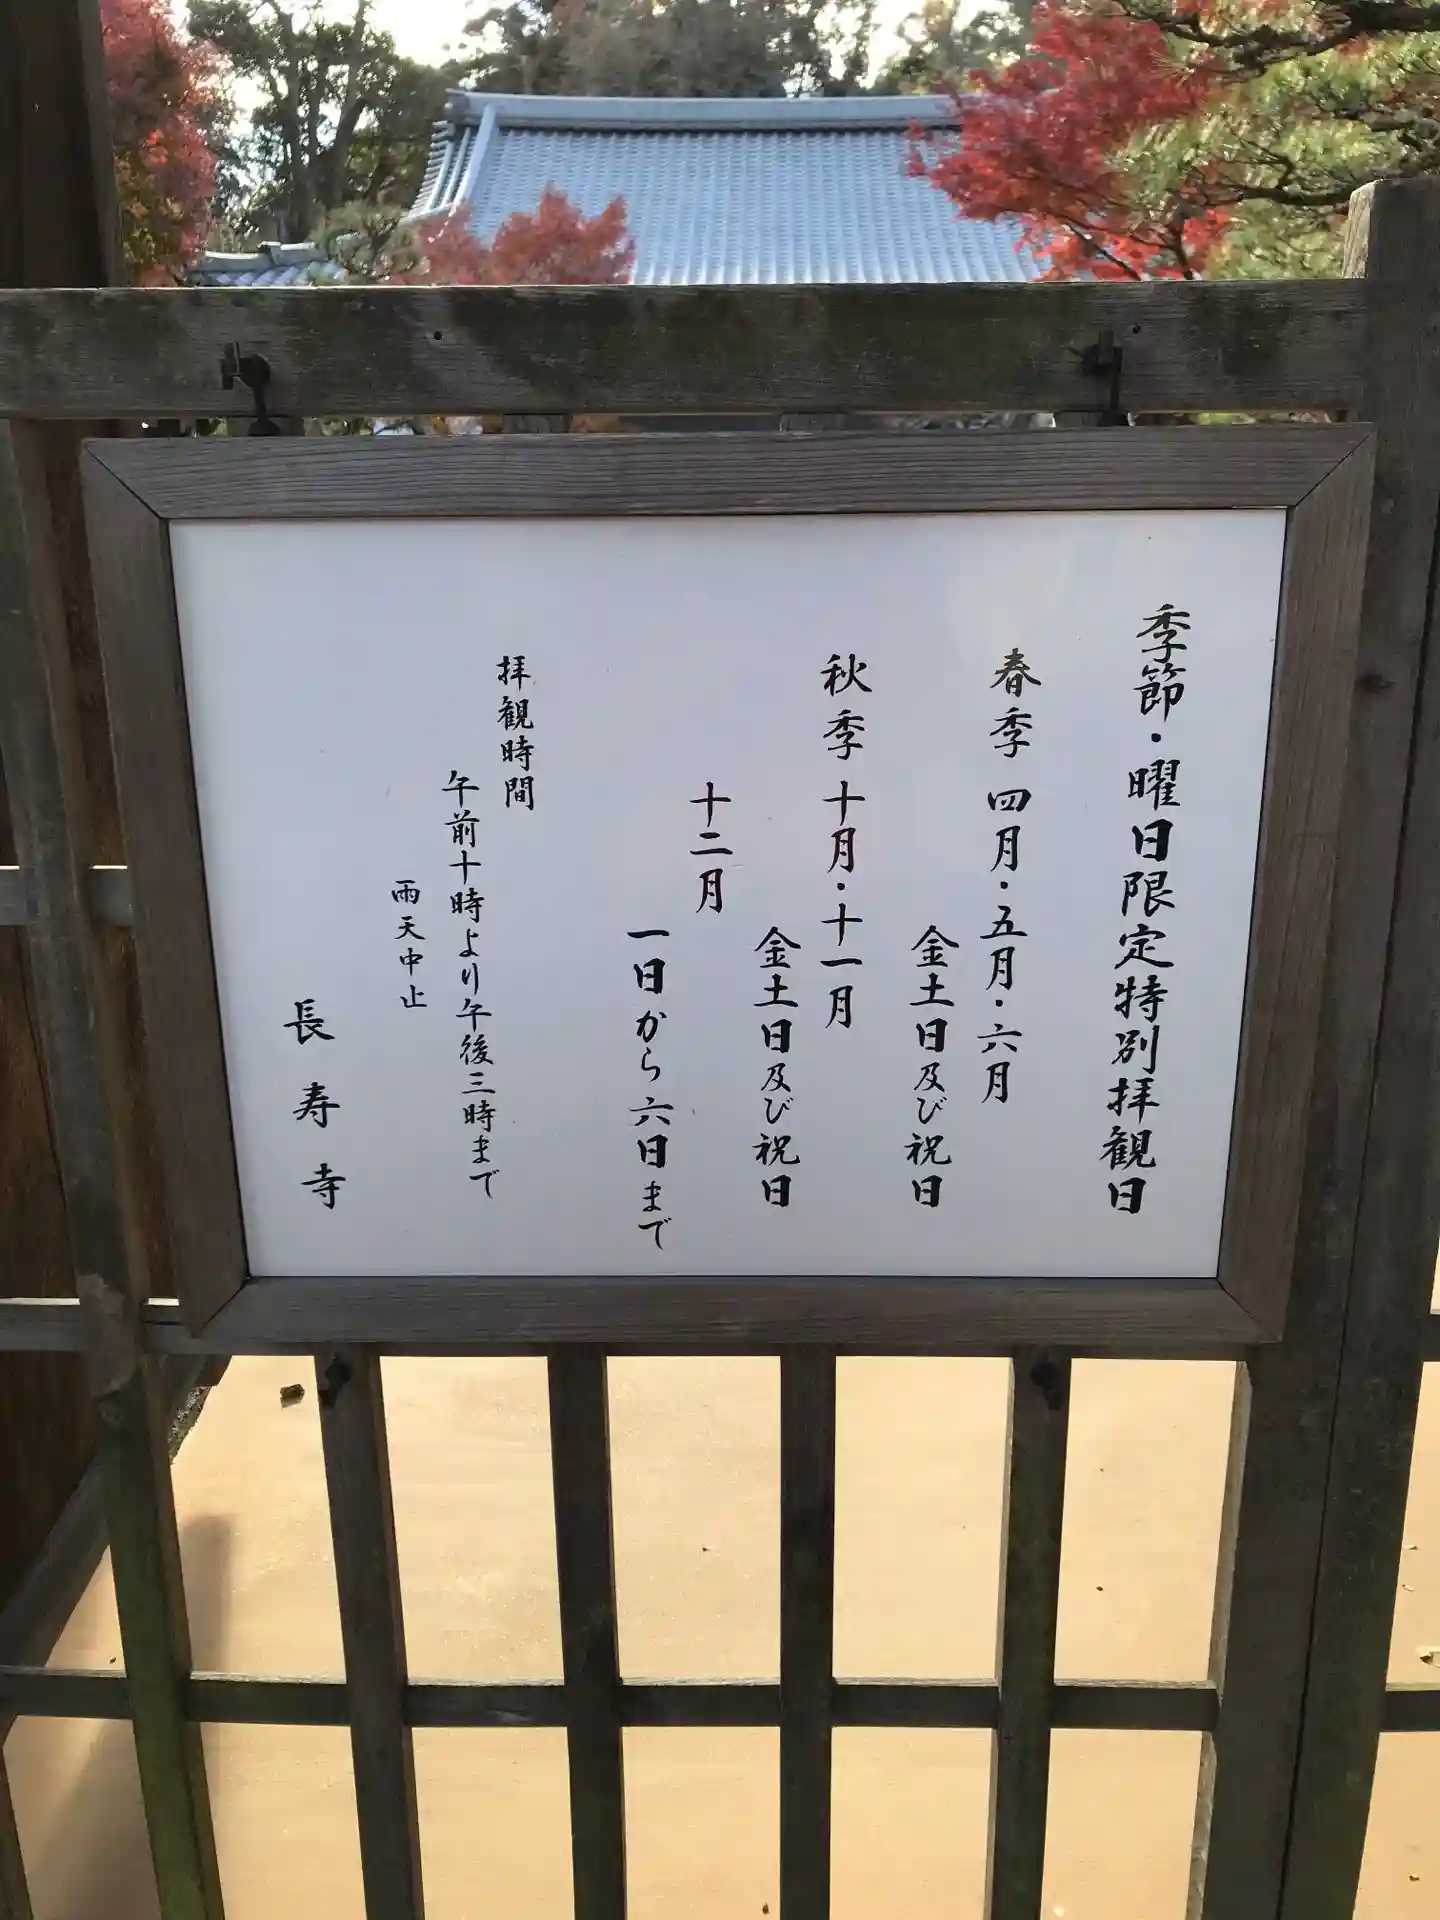 季節・曜日限定特別拝観日
春季 四月・五月・六月
金土日及び祝日
秋季 十月・十一月
金土日及び祝日
十二月
一日から六日まで
拝観時間
午前十時より午後三時まで
雨天中止
長寿寺